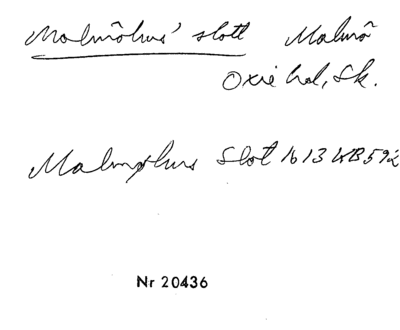 Malmöhus' slott Malmö
Oxie hd, Sk.
Malmøhus Slot 1613 KB 592
Nr 20436